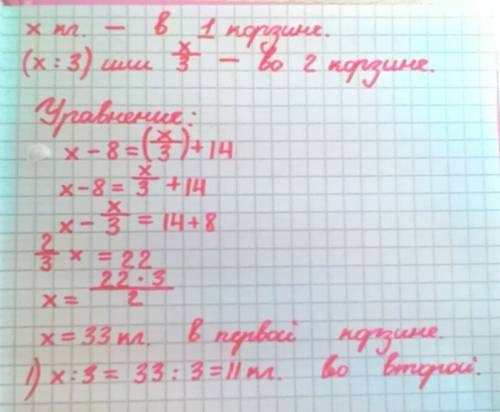 x пл. — в 1 корзине.
(x : 3) или x/3 — во 2 корзине.
Уравнение:
x - 8 = (x/3) + 14
x - 8 = x/3 + 14
x - x/3 = 14 + 8
2/3 x = 22
x = 22 · 3 / 2
x = 33 пл. в первой корзине.
1) x : 3 = 33 : 3 = 11 пл. во второй.